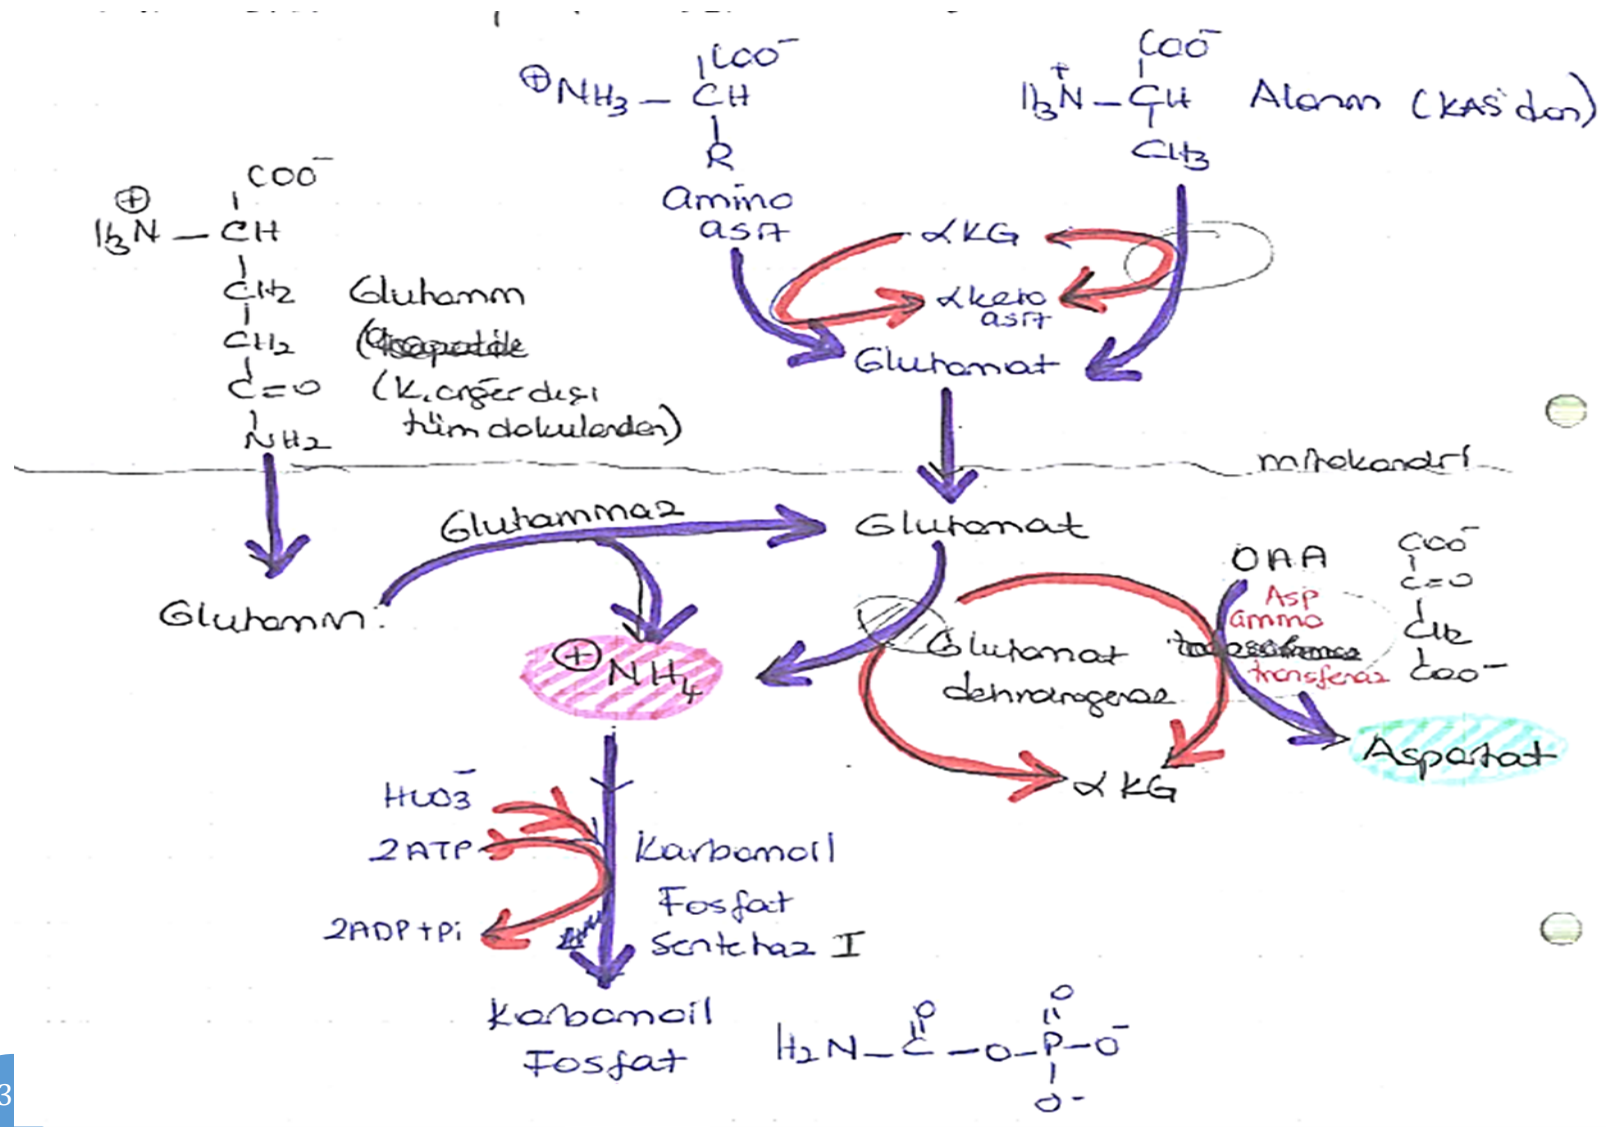 COO⁻
⊕NH₃ — CH
R
amino
asit
COO⁻
H₃N⁺ — CH
CH₃
Alanin (KAS'dan)
COO⁻
⊕
H₃N — CH
CH₂
CH₂
C=O
NH₂
Glutamin
(K.ciğer dışı
tüm dokulardan)
αKG
αketo
asit
Glutamat
mitokondri
Glutaminaz
Glutamat
Glutamin
⊕NH₄
Glutamat
dehidrogenaz
OAA
Asp
amino
transferaz
COO⁻
C=O
CH₂
COO⁻
Aspartat
αKG
HCO₃⁻
2ATP
2ADP+Pi
Karbamoil
Fosfat
Sentetaz I
Karbamoil
Fosfat
H₂N—C—O—P—O⁻
O
O
O⁻
3